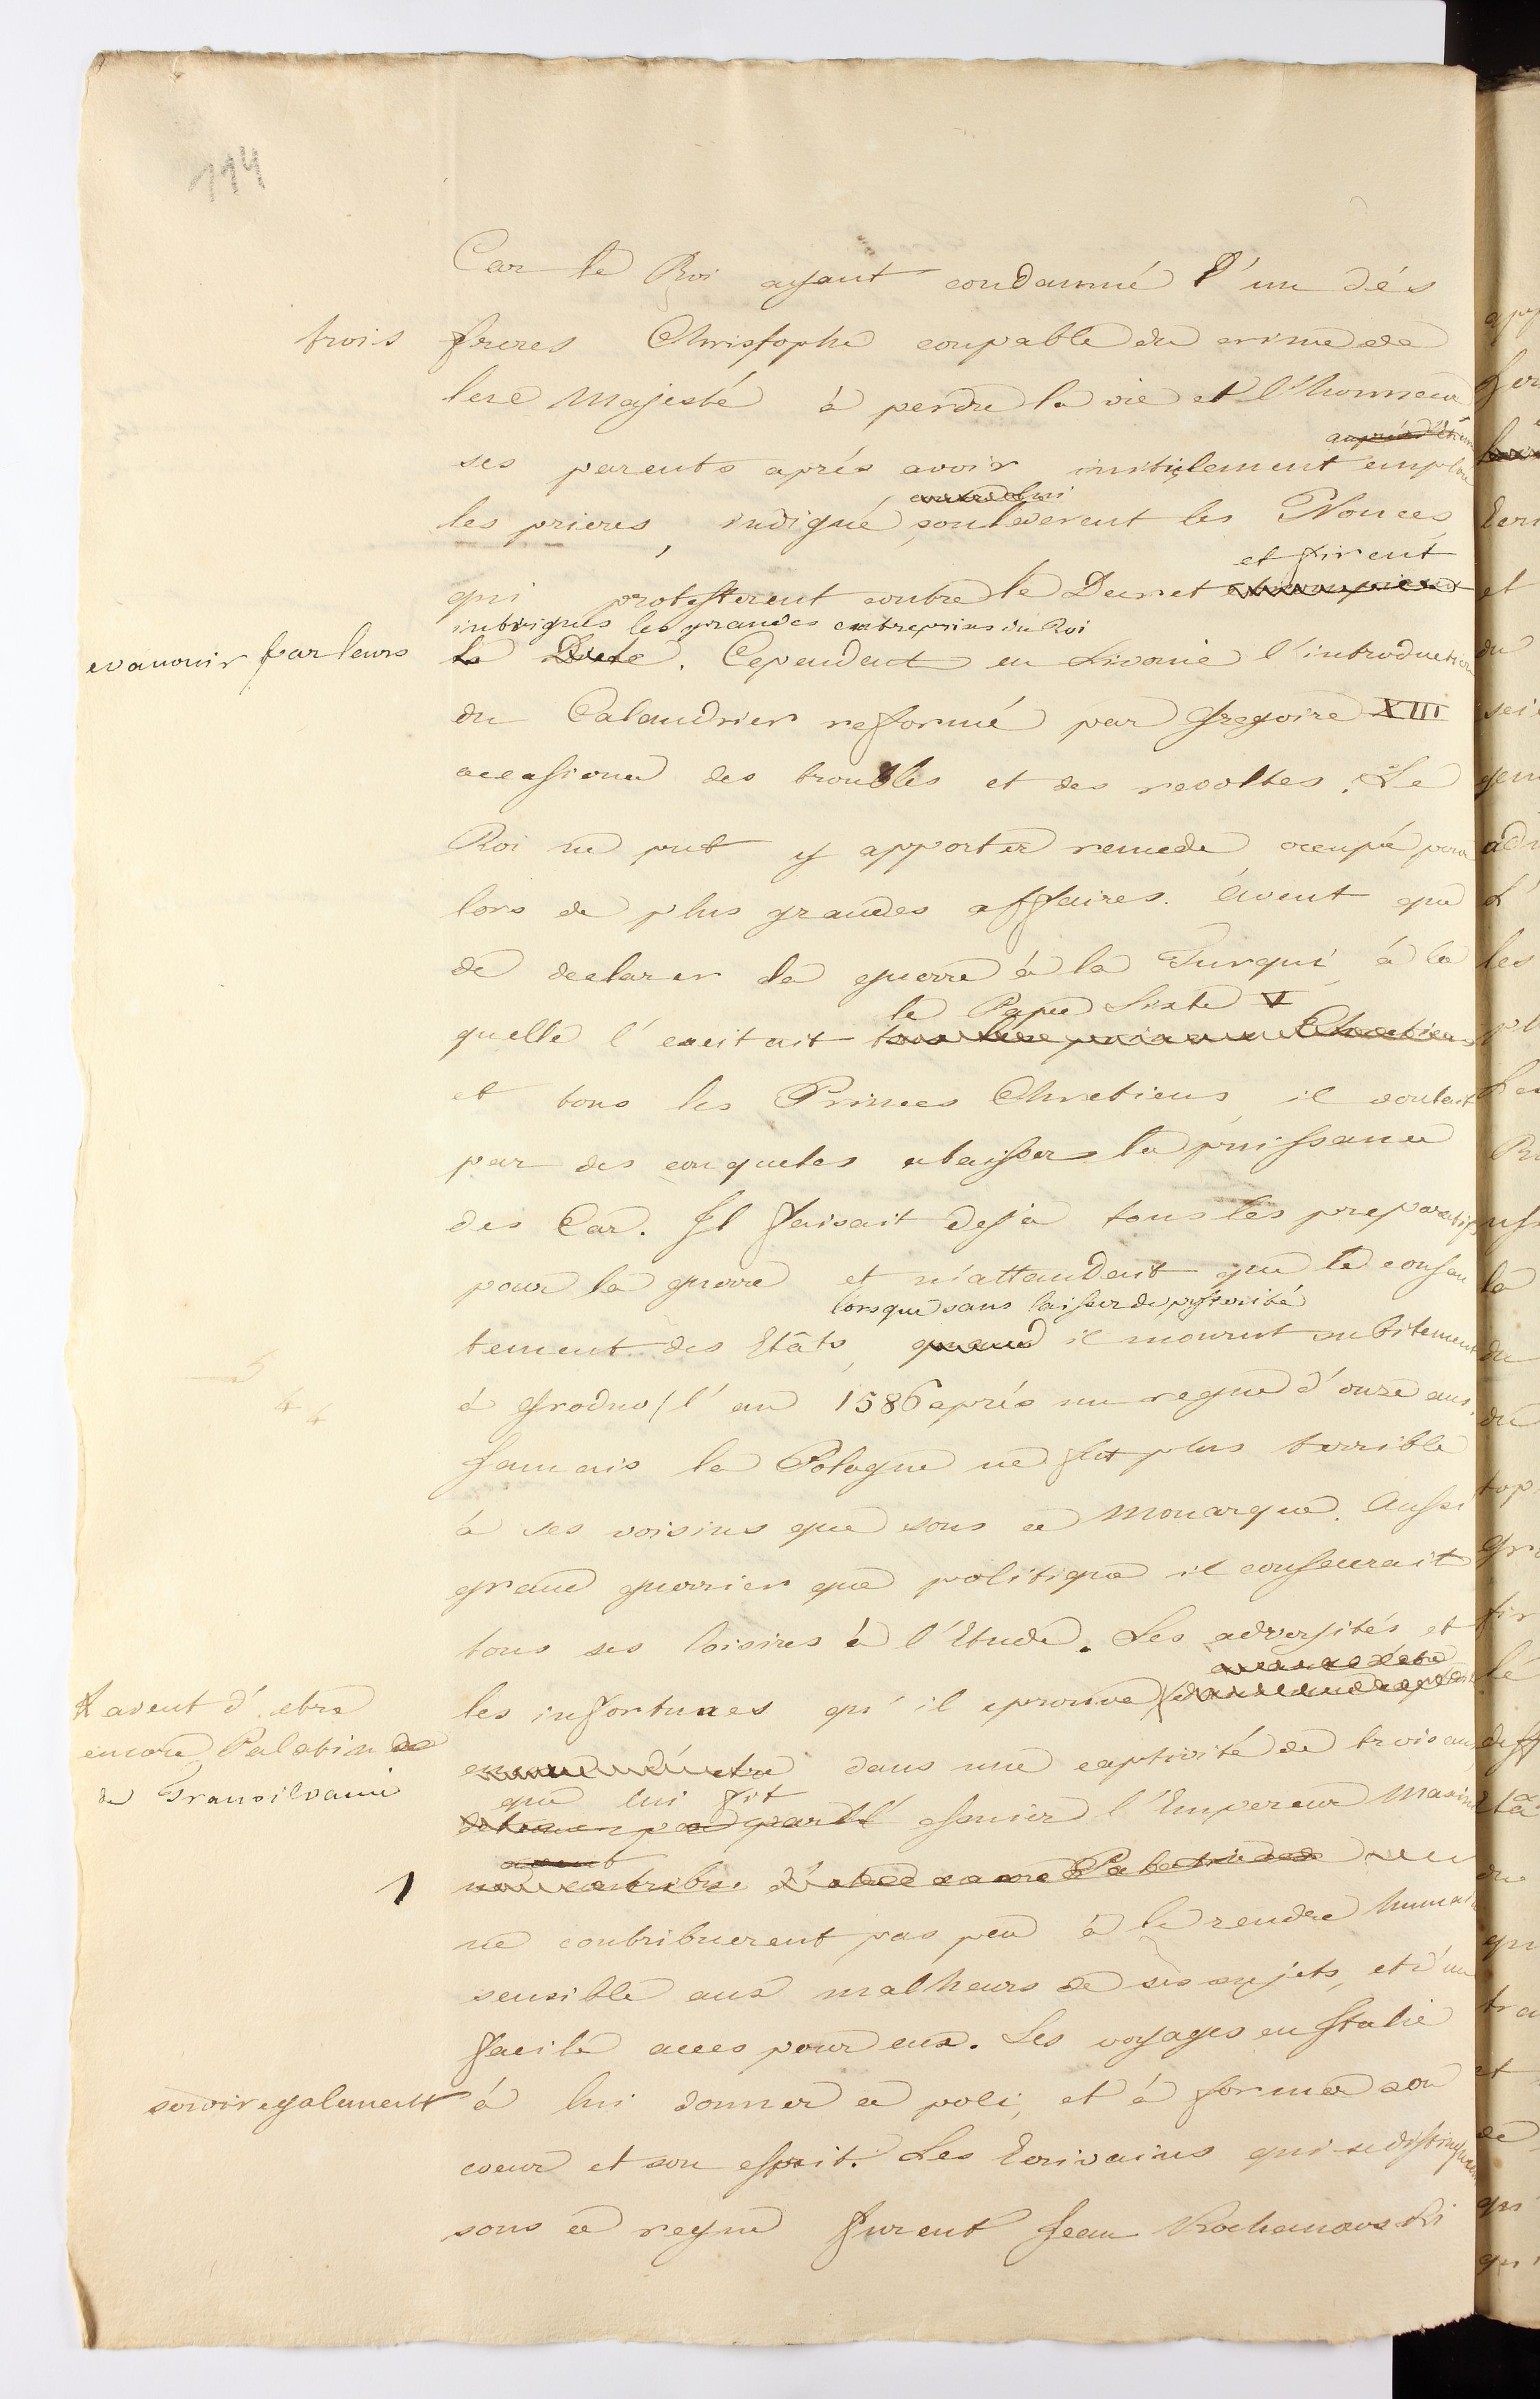 114
Car le Roi ayant condamné l'un dés
trois freres Christophe coupable du crime de
lese Majesté à perdre la vie et l'honneur
ses parents aprés avoir inutilement emploié
les prieres, indigué souleverent les Nonces
et firent
qui protesterent contre le Decret
intrigues les grandes entreprises du Roi
evanouir par leurs la Diete. Cependant en Livonie l'introduction
du Calandrier reformé par Gregoire XIII
occasiona des troubles et des revoltes. Le
Roi ne put y apporter remede occupé pour
lors de plus grandes affaires. Avent que
de declarer la guerre à la Turqui, à la
le Pape Sixte V
quelle l'excitait
et tous les Princes Chretiens, il voulait
par des conquetes abaisser la puissance
des Car. Il faisait deja tous les preparatifs
pour la guerre et n'attandait que le consen
lorsque sans laisser de posterité
tement des Etâts, quand il mourut subitement
à Grodno l'an 1586 aprés un regne d'onze ans.
Jamais la Pologne ne fut plus terrible
à ses voisins que sous ce Monarque. Aussi
grand guerrier que politique il consecrait
tous ses loisires à l'Etude. Les adversités et
les infortunes qu'il eprouva
avent d'etre
encore Palatin de
de Transilvanie
dans une captivité de trois ans,
que lui fit
essuier l'Empereur Maximi
1
ne contribuerent pas peu à le rendre humain
sensible aux malheurs de ses sujets, et d'un
facile acces pour eux. Les voyages en Italie
servir egalement à lui donner ce poli, et à former son
coeur et son esprit. Les Ecrivains qui se distinguer
sous ce regne furent Jean Kochanowski